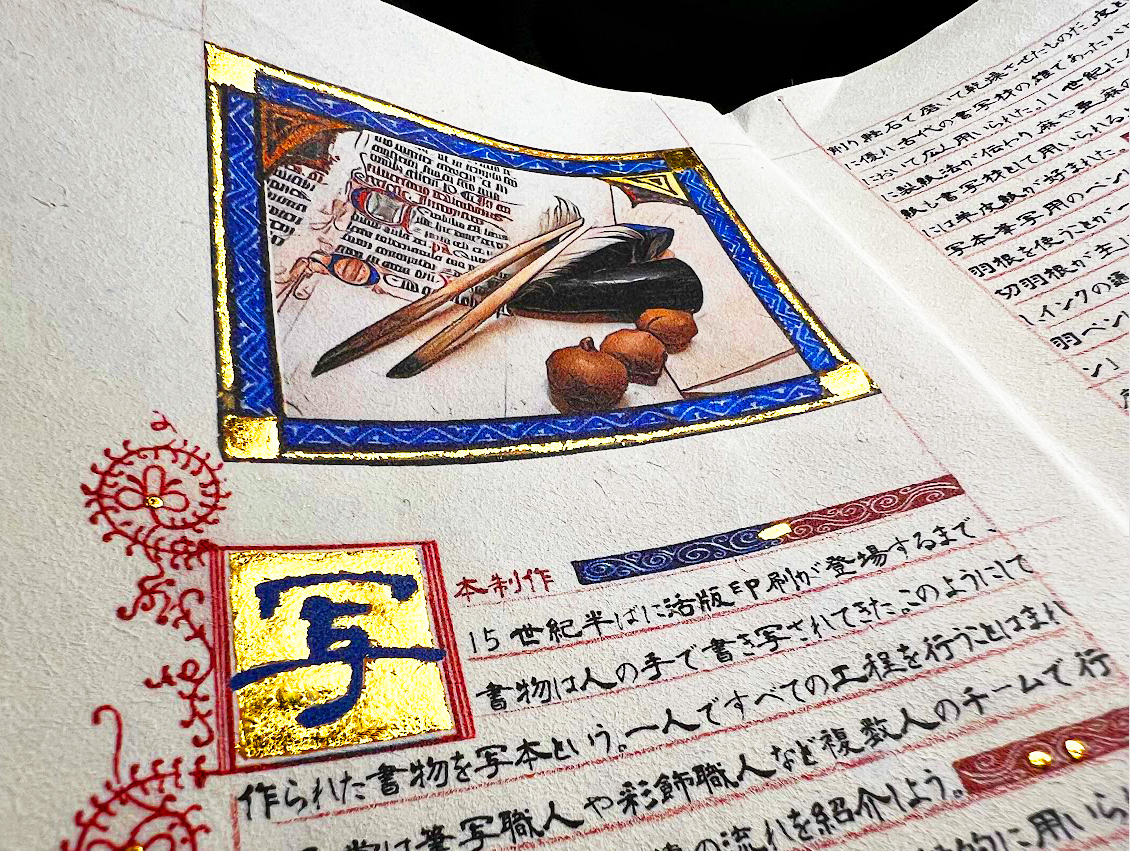 写
本制作
15世紀半ばに活版印刷が登場するまで、
書物は人の手で書き写されてきた。このようにして
作られた書物を写本という。一人ですべての工程を行うことはまれ
常は筆写職人や彩飾職人など複数人のチームで行
の流れを紹介しよう。
的に用いら
削り軽石で磨いて乾燥させたものだ。皮と
に使い古代の書写材の雄であったパピ
において広く用いられた。11世紀にイ
に製紙法が伝わり麻や亜麻の
紙も書写材として用いられる
には羊皮紙が好まれた。
写本筆写用のペン
羽根を使うことが一
切羽根が主
、インクの適
羽ペン
ン」